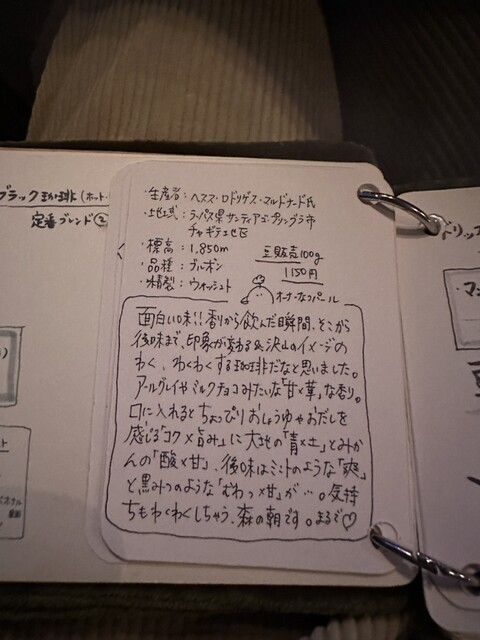 ブラック珈琲(ホット・
定番ブレンド②
・生産者:ヘスス・ロドリゲス・マルドナード氏
・地域:ラ・パス県サンティアゴ・プリングラ市
チャギテ地区
・標高:1,850m
豆販売100g
1150円
・品種:ブルボン
・精製:ウォッシュト
オーナーなつパール
面白い味!!香りから飲んだ瞬間、そこから
後味まで、印象が変わる&沢山のイメージの
わく、わくわくする珈琲だなと思いました。
アールグレイやミルクチョコみたいな「甘×華」な香り。
口に入れるとちょっぴりおしょうゆやおだしを
感じる「コク×旨み」に大地の「青×土」とみか
んの「酸×甘」、後味はミントのような「爽」
と黒みつのような「むわっ×甘」が…。気持
ちもわくわくしちゃう、森の朝です。まるで♡
ドリップ